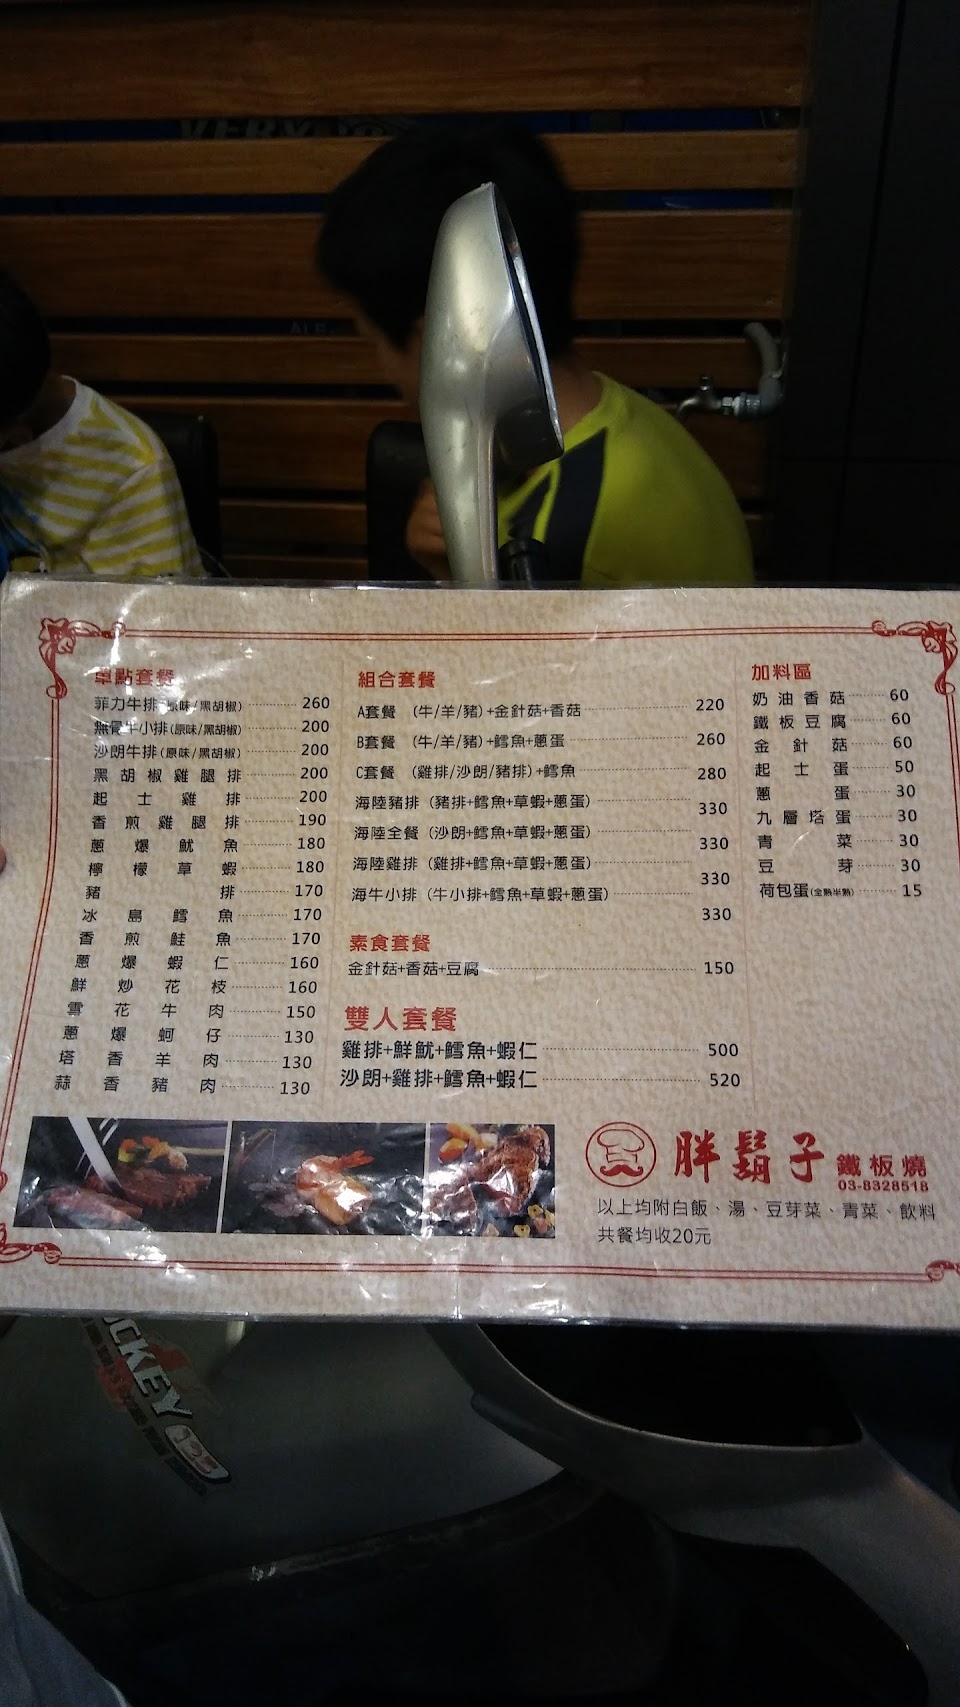 單點套餐
菲力牛排(原味/黑胡椒) 260
無骨牛小排(原味/黑胡椒) 200
沙朗牛排(原味/黑胡椒) 200
黑胡椒雞腿排 200
起士雞排 200
香煎雞腿排 190
蔥爆魷魚 180
檸檬草蝦 180
豬排 170
冰島鱈魚 170
香煎鮭魚 170
蔥爆蝦仁 160
鮮炒花枝 160
雪花牛肉 150
蔥爆蚵仔 130
塔香羊肉 130
蒜香豬肉 130
組合套餐
A套餐 (牛/羊/豬)+金針菇+香菇 220
B套餐 (牛/羊/豬)+鱈魚+蔥蛋 260
C套餐 (雞排/沙朗/豬排)+鱈魚 280
海陸豬排 (豬排+鱈魚+草蝦+蔥蛋) 330
海陸全餐 (沙朗+鱈魚+草蝦+蔥蛋) 330
海陸雞排 (雞排+鱈魚+草蝦+蔥蛋) 330
海牛小排 (牛小排+鱈魚+草蝦+蔥蛋) 330
素食套餐
金針菇+香菇+豆腐 150
雙人套餐
雞排+鮮魷+鱈魚+蝦仁 500
沙朗+雞排+鱈魚+蝦仁 520
加料區
奶油香菇 60
鐵板豆腐 60
金針菇 60
起士蛋 50
蔥蛋 30
九層塔蛋 30
青菜 30
豆芽 30
荷包蛋(全熟半熟) 15
胖鬍子 鐵板燒
03-8328518
以上均附白飯、湯、豆芽菜、青菜、飲料
共餐均收20元
OCKEY
125